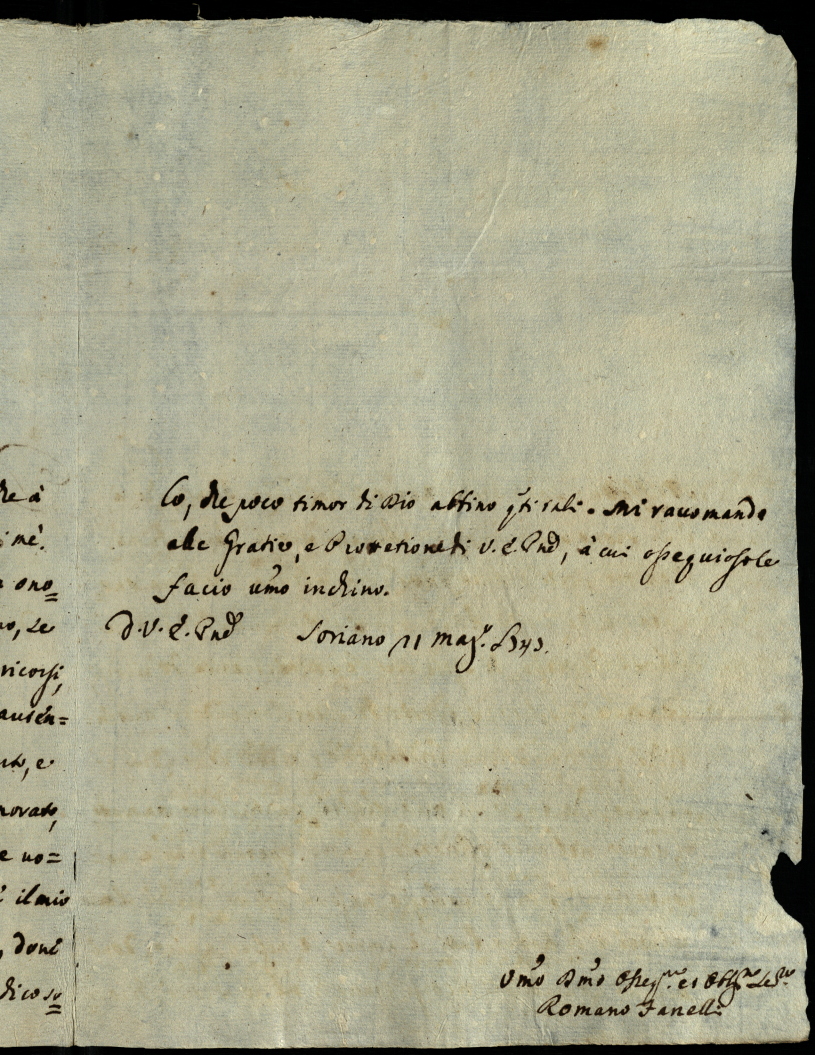 che à
imè.
ono=
no, Le
ricorsi,
ausen=
e
morato,
e uo=
il mio
, doue
dico so=
Co, che poco timor di Dio abbino q̃ti tali. Mi racomando
alle Gratie, e Protetione di V. E. Pnd, à cui ossequiosole
facio umo inchino.
D. V. E. Pnd Soriano 11 Mag.
Umo Dmo Osseq et Obl
Romano Fanelli